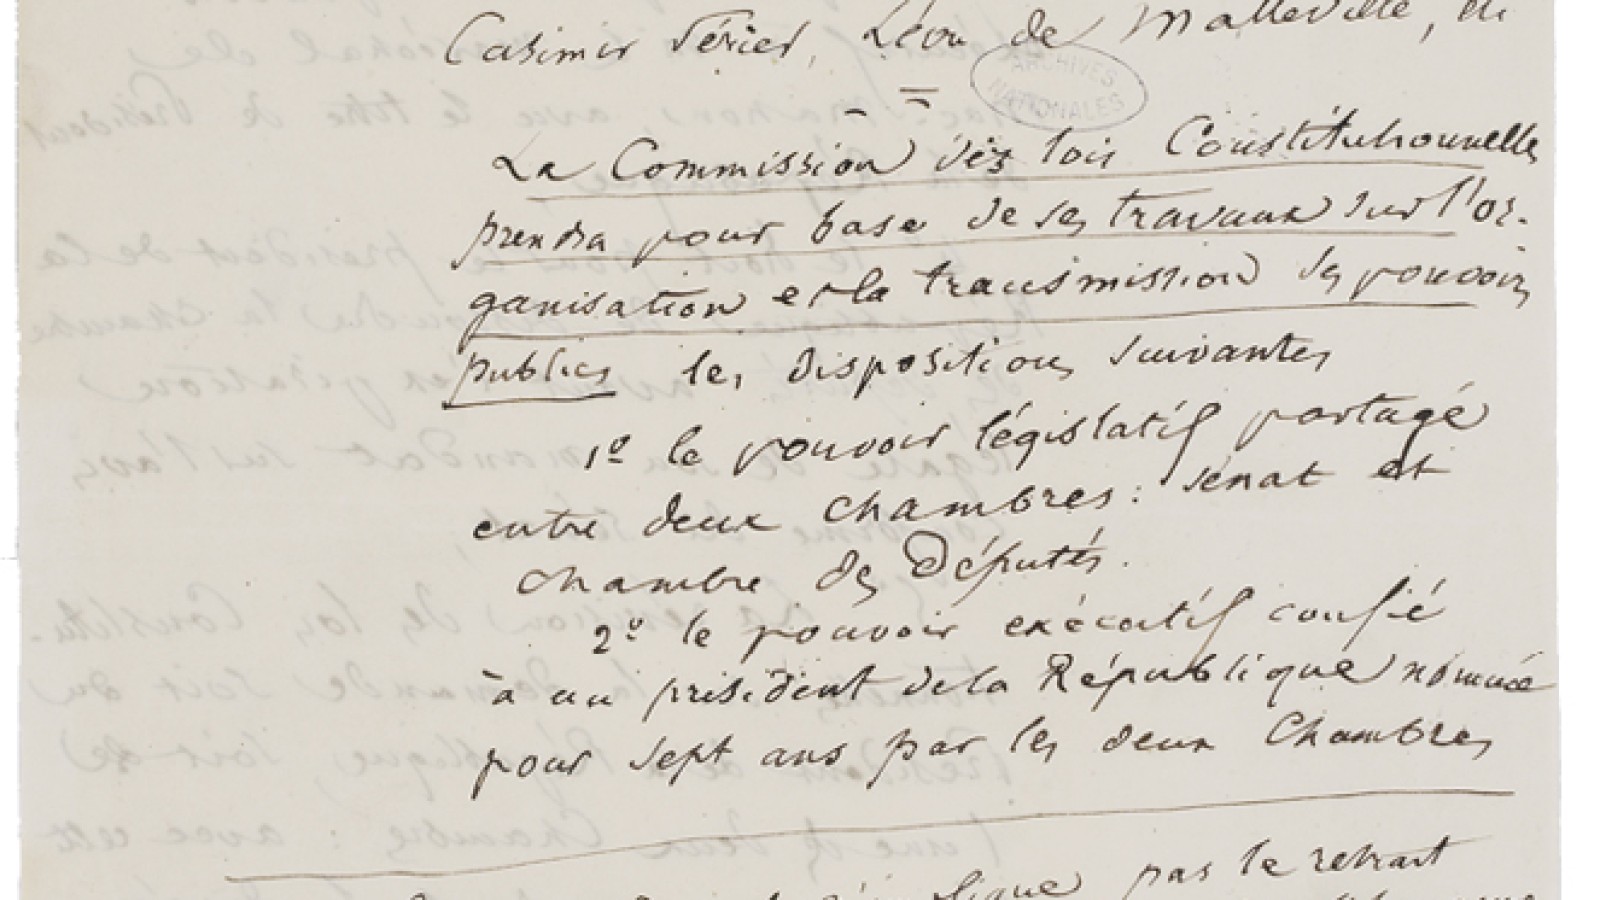 Casimir Périer, Léon de Malleville, etc
ARCHIVES NATIONALES
La Commission des lois Constitutionnelles
prendra pour base de ses travaux sur l'or-
ganisation et la transmission des pouvoirs
publics les dispositions suivantes
1º le pouvoir législatif partagé
entre deux chambres : sénat et
chambre des Députés.
2º le pouvoir exécutif confié
à un président de la République nommé
pour sept ans par les deux Chambres
pas le retrait